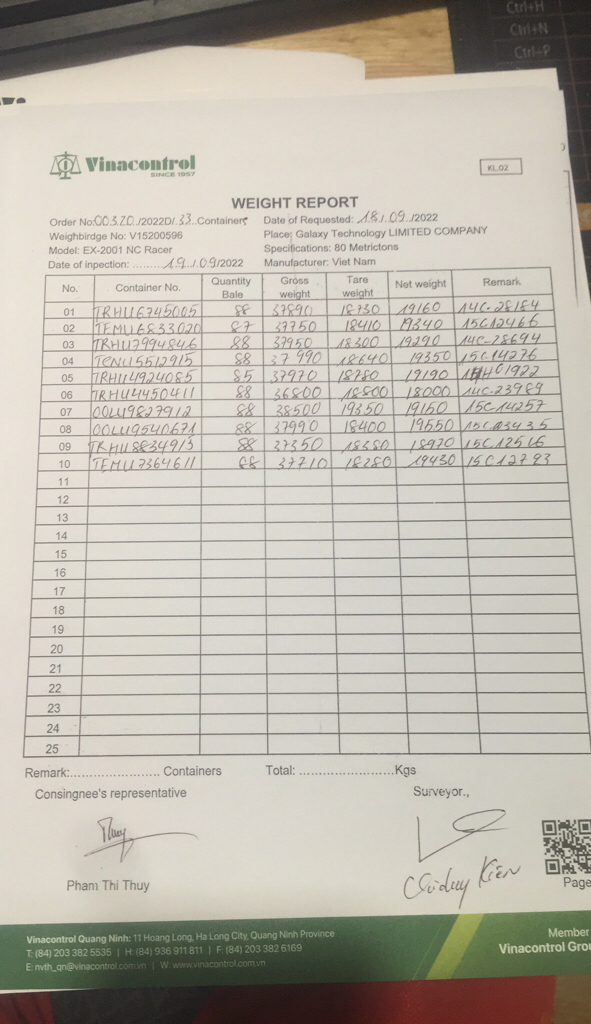 Ctrl+H
Ctrl+N
Ctrl+P
Vinacontrol
SINCE 1957
KL.02
WEIGHT REPORT
Order No:00320./2022D/.33..Containers Date of Requested: .18./.09./2022
Weighbridge No: V15200596 Place: Galaxy Technology LIMITED COMPANY
Model: EX-2001 NC Racer Specifications: 80 Metrictons
Date of inpection: ..........19../.09/2022 Manufacturer: Viet Nam
No. Container No. Quantity Bale Gross weight Tare weight Net weight Remark
01 TRHU6745005 88 37890 18730 19160 14C-28184
02 TEMU6833020 87 37750 18410 19340 15C12466
03 TRHU7994846 88 37950 18300 19290 14C-28694
04 TCNU5512915 88 37990 18640 19350 15C14276
05 TRHU4924085 85 37970 18780 19190
06 TRHU4450411 88 36800 18800 18000 14C-23989
07 OOLU9827912 88 38500 19350 19150 15C14257
08 OOLU9540671 88 37990 18400 19550 15C03435
09 TRHU8834913 88 37350 18380 18970 15C12516
10 TEMU7364611 88 37710 18280 19430 15C12793
11
12
13
14
15
16
17
18
19
20
21
22
23
24
25
Remark:....................... Containers Total: ........................Kgs
Consingnee's representative Surveyor.,
Thuy
Pham Thi Thuy
Kiên
Page
Vinacontrol Quang Ninh: 11 Hoang Long, Ha Long City, Quang Ninh Province
T: (84) 203 382 5535 | H: (84) 936 911 811 | F: (84) 203 382 6169
E: nvth_qn@vinacontrol.com.vn | W: www.vinacontrol.com.vn
Member
Vinacontrol Grou